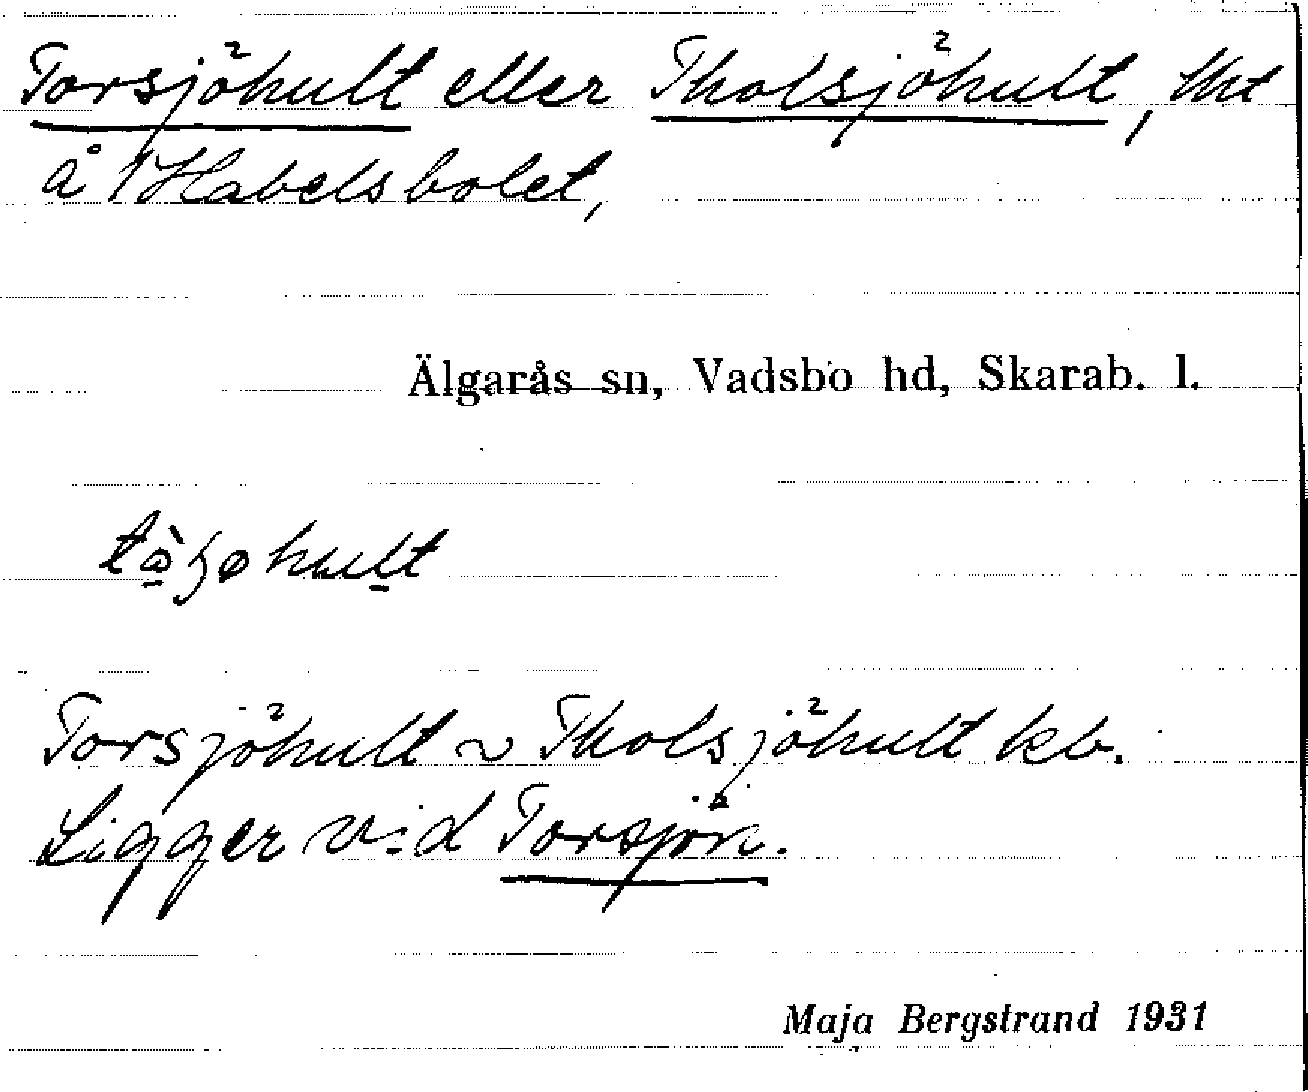 Torsjöhult eller Tholsjöhult, tht
å 1 Habelsbolet,
Älgarås sn, Vadsbo hd, Skarab. l.
Torsjöhult ~ Tholsjöhult kb.
Ligger vid Torsjön.
Maja Bergstrand 1931